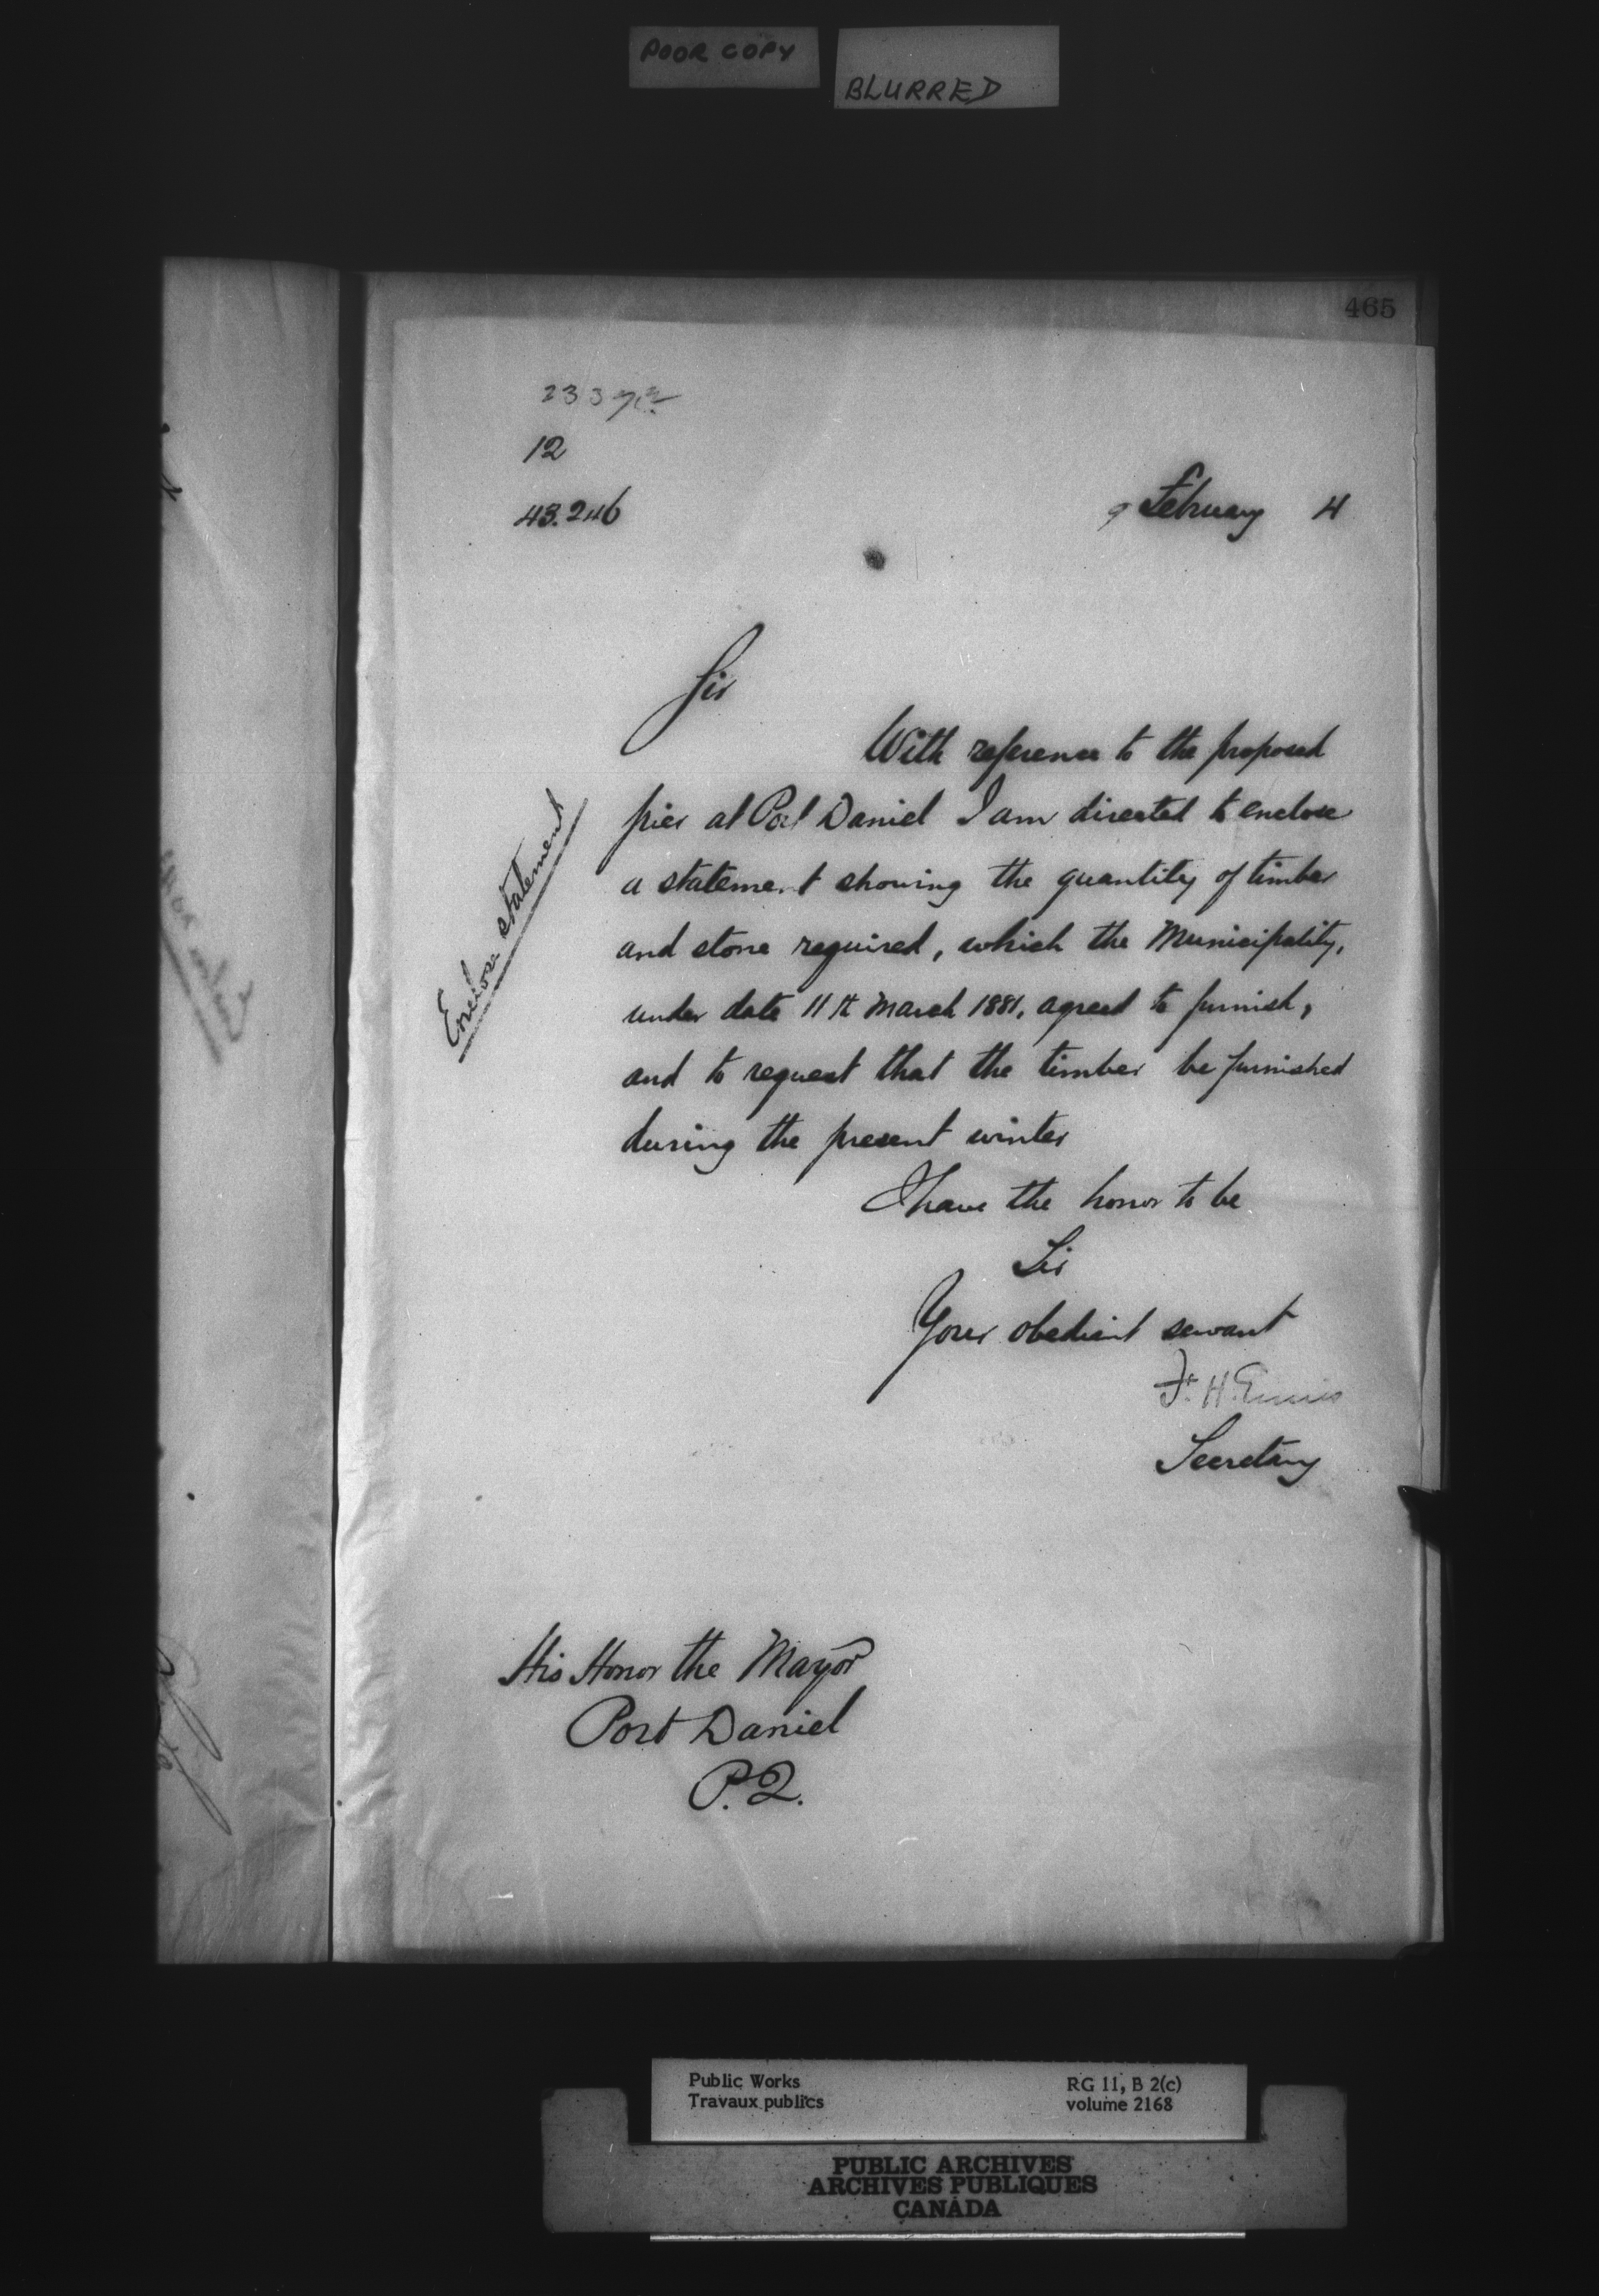 POOR COPY
BLURRED
465
12
43.246
9 February 4
Sir
With reference to the proposed
pier at Port Daniel I am directed to enclose
a statement showing the quantity of timber
and stone required, which the Municipality,
under date 11th March 1881, agreed to furnish,
and to request that the timber be furnished
during the present winter
Enclose statement
I have the honor to be
Sir
Your obedient servant
F. H. Ennis
Secretary
His Honor the Mayor
Port Daniel
P.Q.
Public Works
Travaux publics
RG 11, B 2(c)
volume 2168
PUBLIC ARCHIVES
ARCHIVES PUBLIQUES
CANADA